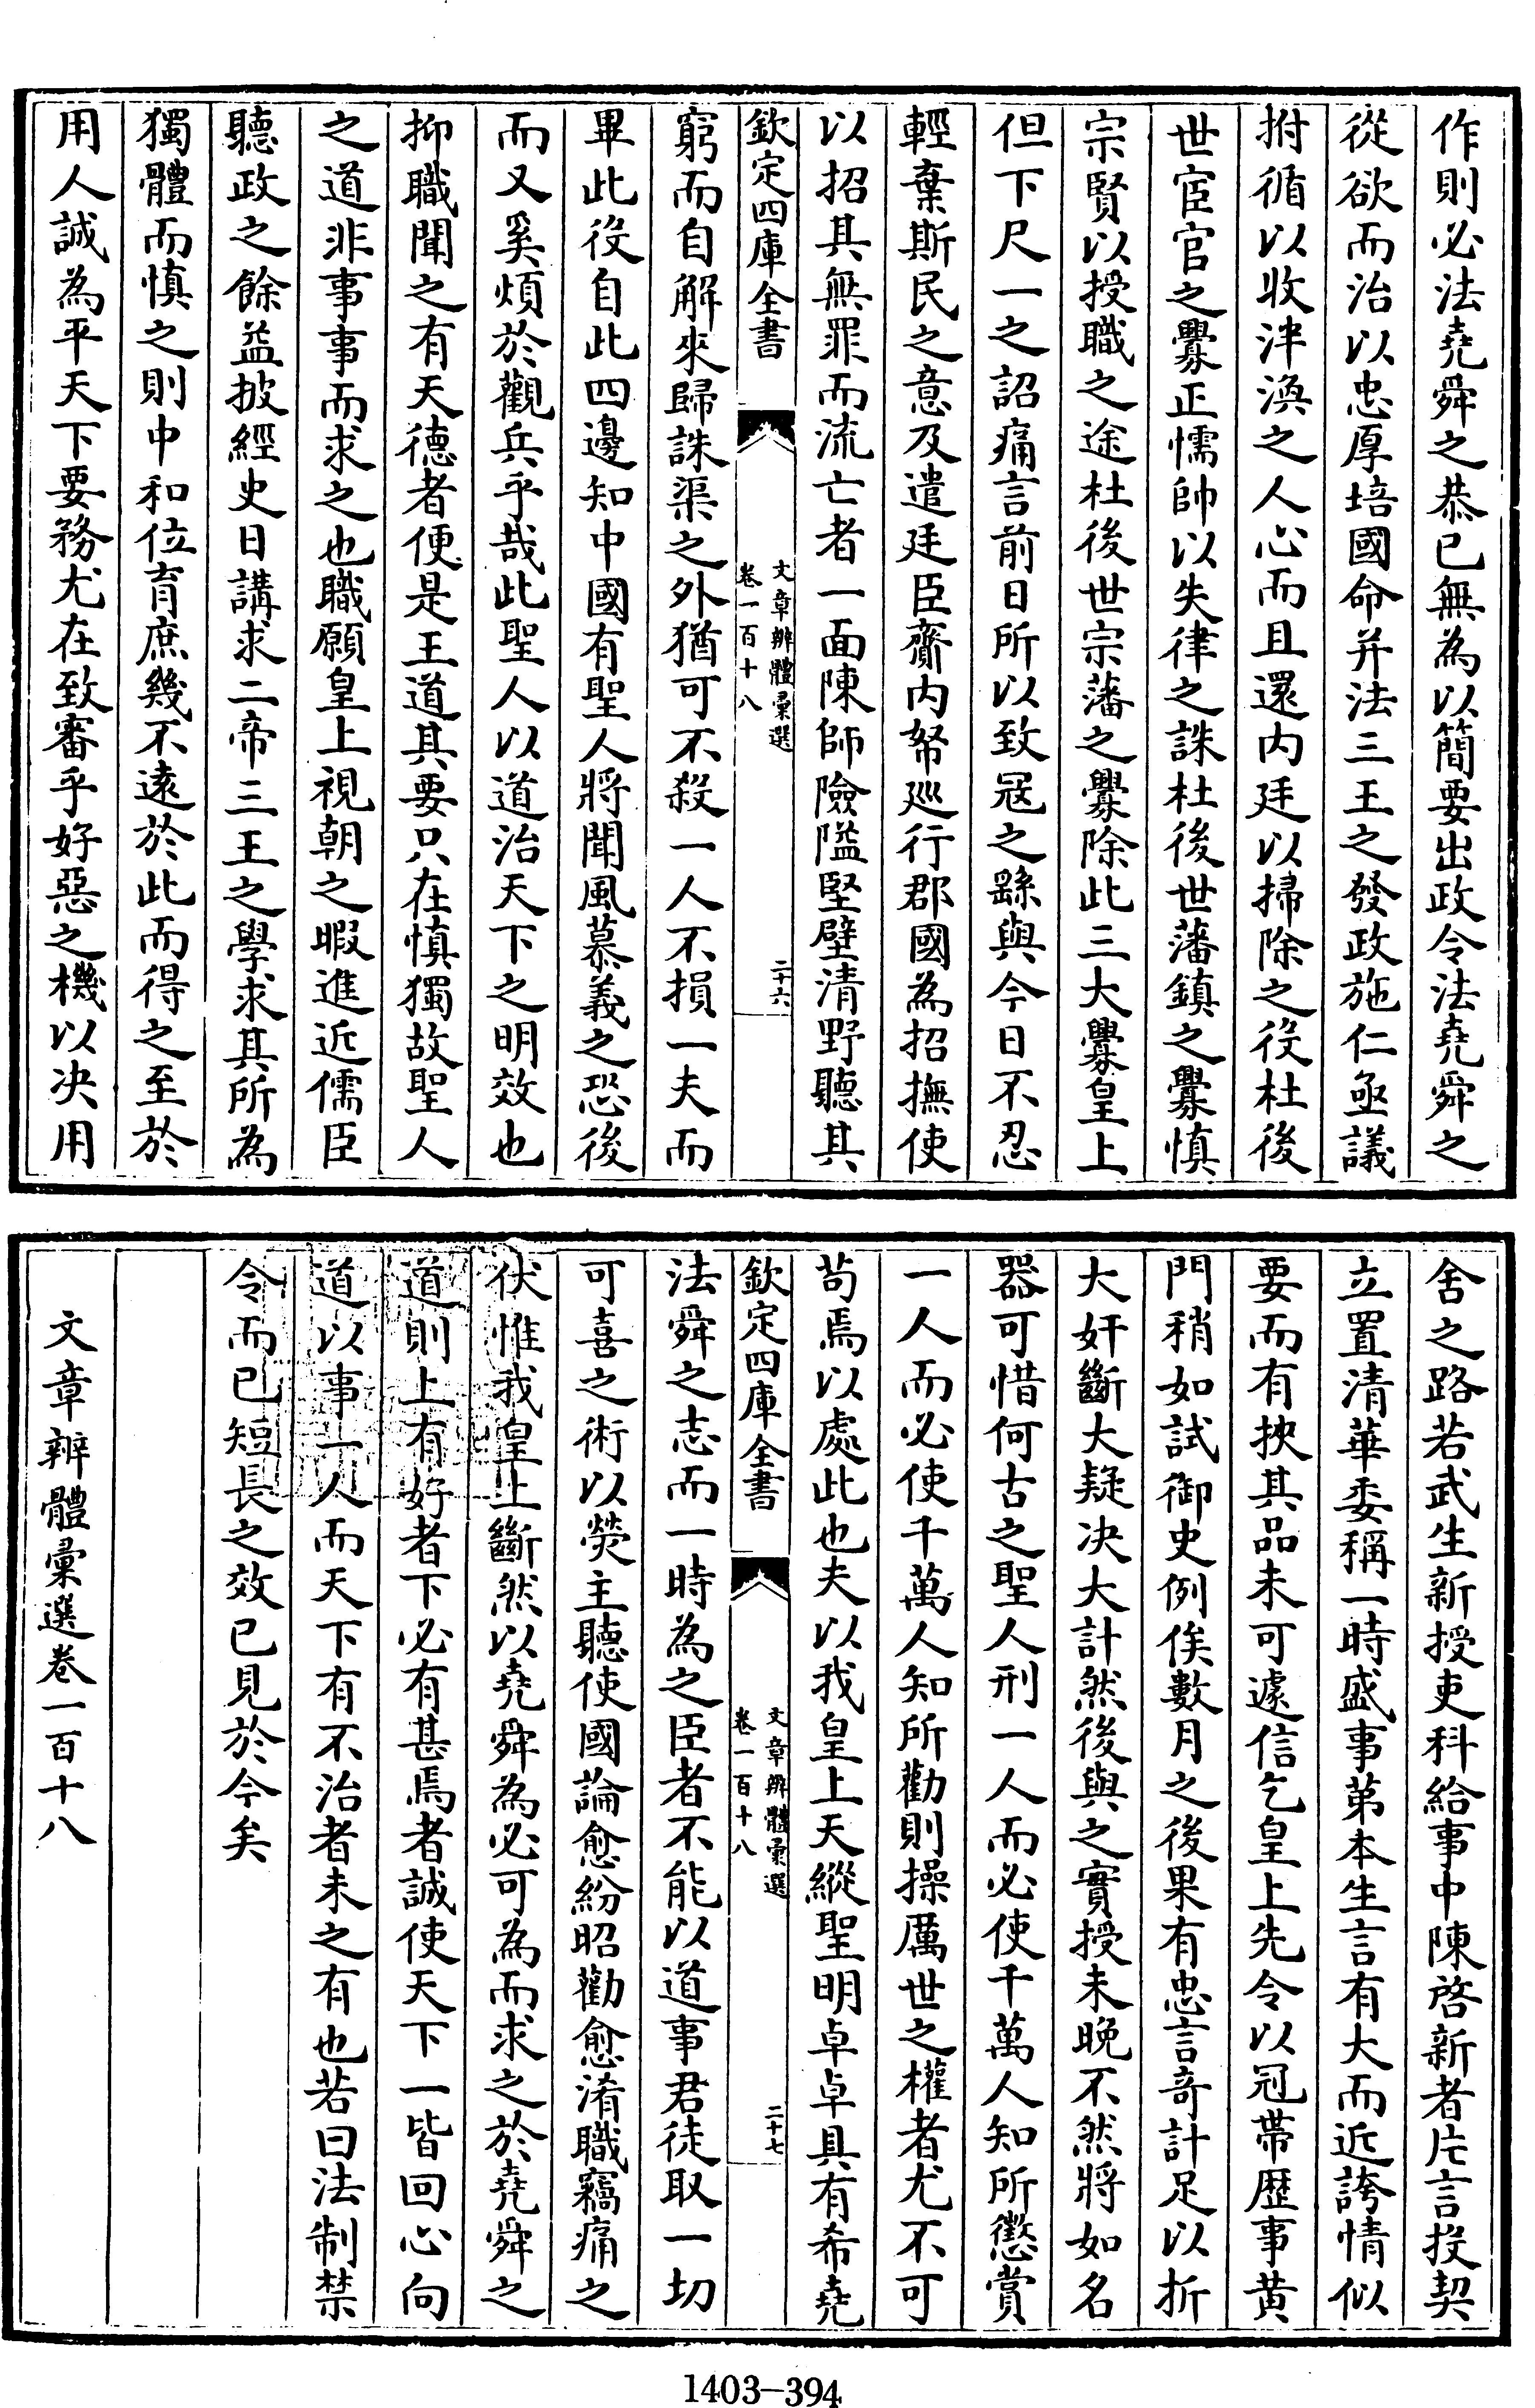 作則必法堯舜之恭已無為以簡要出政令法堯舜之
從欲而治以忠厚培國命并法三王之發政施仁亟議
拊循以收泮渙之人心而且還内廷以掃除之役杜後
世宦官之釁正懦帥以失律之誅杜後世藩鎮之釁慎
宗賢以授職之途杜後世宗藩之釁除此三大釁皇上
但下尺一之詔痛言前日所以致冦之繇與今日不忍
輕棄斯民之意及遣廷臣齎内帑廵行郡國為招撫使
以招其無罪而流亡者一面陳師險隘堅壁清野聽其
欽定四庫全書
文章辨體彚選
卷一百十八
二十六
窮而自解來歸誅渠之外猶可不殺一人不損一夫而
畢此役自此四邊知中國有聖人將聞風慕義之恐後
而又奚煩於觀兵乎哉此聖人以道治天下之明效也
抑職聞之有天德者便是王道其要只在慎獨故聖人
之道非事事而求之也職願皇上視朝之暇進近儒臣
聽政之餘益披經史日講求二帝三王之學求其所為
獨體而慎之則中和位育庶幾不遠於此而得之至於
用人誠為平天下要務尤在致審乎好惡之機以决用
舍之路若武生新授吏科給事中陳啓新者片言投契
立置清華委稱一時盛事第本生言有大而近誇情似
要而有挾其品未可遽信乞皇上先令以冠帶歴事黄
門稍如試御史例俟數月之後果有忠言竒計足以折
大奸斷大疑决大計然後與之實授未晩不然將如名
器可惜何古之聖人刑一人而必使千萬人知所懲賞
一人而必使千萬人知所勸則操厲世之權者尤不可
茍焉以處此也夫以我皇上天縱聖明卓卓具有希堯
欽定四庫全書
文章辨體彚選
卷一百十八
二十七
法舜之志而一時為之臣者不能以道事君徒取一切
可喜之術以熒主聽使國論愈紛昭勸愈淆職竊痛之
伏惟我皇上斷然以堯舜為必可為而求之於堯舜之
道則上有好者下必有甚焉者誠使天下一皆回心向
道以事一人而天下有不治者未之有也若曰法制禁
令而已短長之效已見於今矣
文章辨體彚選卷一百十八
1403-394